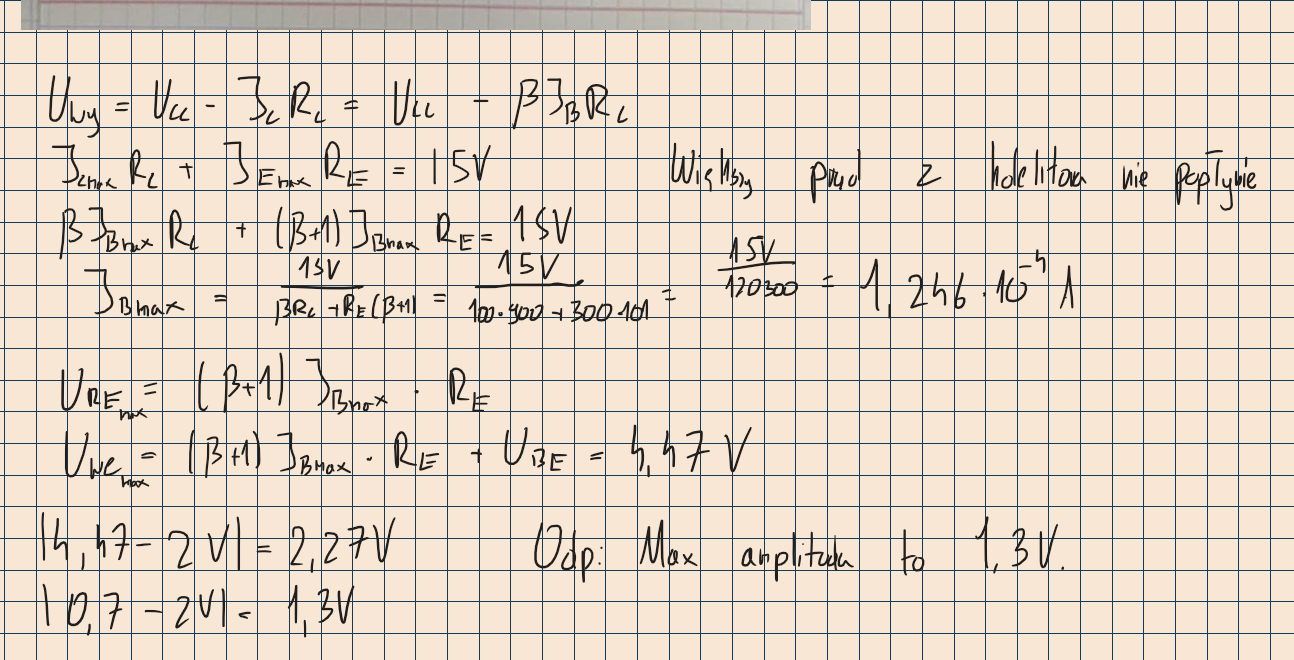 U_wy = U_cc - I_c R_c = U_cc - β I_B R_c
I_cmax R_c + I_Emax R_E = 15V Większy prąd z kolektora nie popłynie
β I_Bmax R_c + (β+1) I_Bmax R_E = 15V
I_Bmax = 15V / βR_c + R_E (β+1) = 15V / 100·900 + 300·101 = 15V / 120300 = 1,246·10⁻⁴ A
U_REmax = (β+1) I_Bmax · R_E
U_we max = (β+1) I_Bmax · R_E + U_BE = 4,47 V
|4,47 - 2V| = 2,27V Odp: Max amplituda to 1,3V.
|0,7 - 2V| = 1,3V